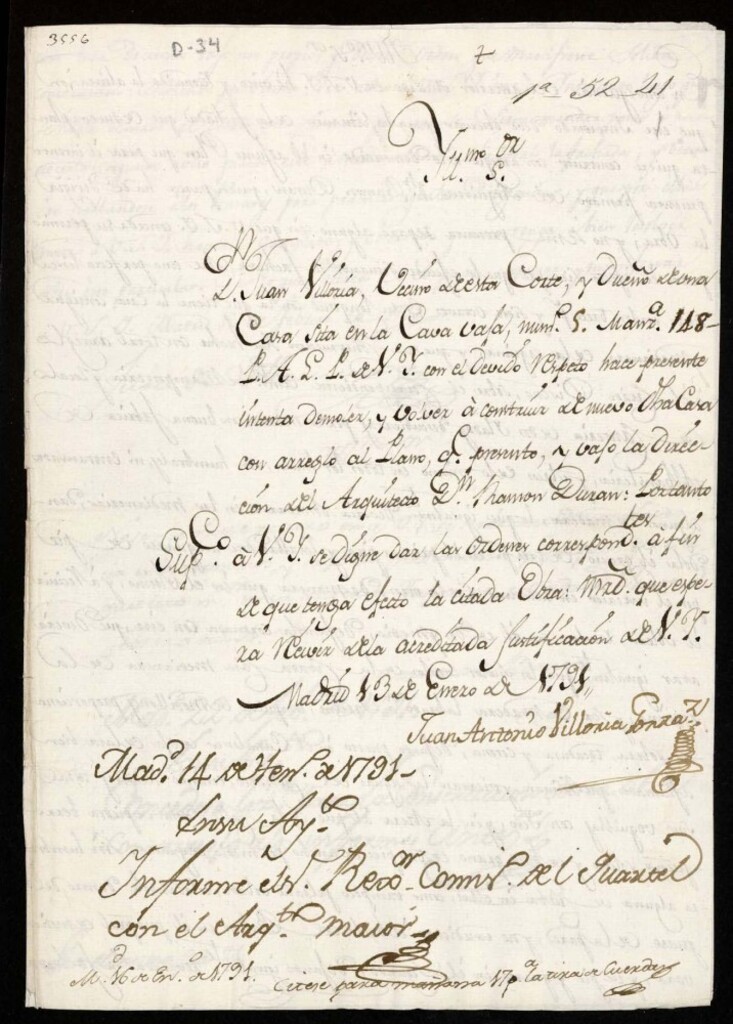 3556
D-34
1ª 52 - 21
Yllmo. Sor.
Dn. Juan Villoria, Vecino de esta Corte, y Dueño de una
Casa sita en la Cava vaja, num.º 5. Manz.ª 148-
P. A. L. P. de V. Y. con el devido respeto hace presente
intenta demoler, y volver à construir de nuevo dha Casa
con arreglo al Plano, q.e presento, y vajo la direc-
ción del Arquitecto Dn. Ramon Duran: Portanto
Sup.co à V. Y. se digne dar las ordenes correspond.tes à fin
de que tenga efecto la citada Obra: Mrd. que espe-
ra recivir de la acreditada justificación de V. Y.
Madrid 13 de Enero de 1791,,
Juan Antonio Villoria Gonza.z
Mad.d 14 de Hen.º de 1791-
En su Ay.to
Informe el S.r Rexo.or Comis.º del Quartel
con el Arq.to maior
M.d 16 de En.º de 1791.
Citese para mañana 17 p.ª la tira de Cuerdas